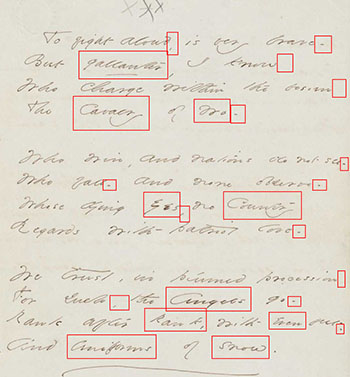 To fight aloud, is very brave -
But gallanter, I know
Who charge within the bosom
The Cavalry of Wo -
Who win, and nations do not see -
Who fall - and none observe -
Whose dying eyes, no Country
Regards with patriot love -
We trust, in plumed procession
For such, the Angels go -
Rank after Rank, with even feet -
And Uniforms of Snow.